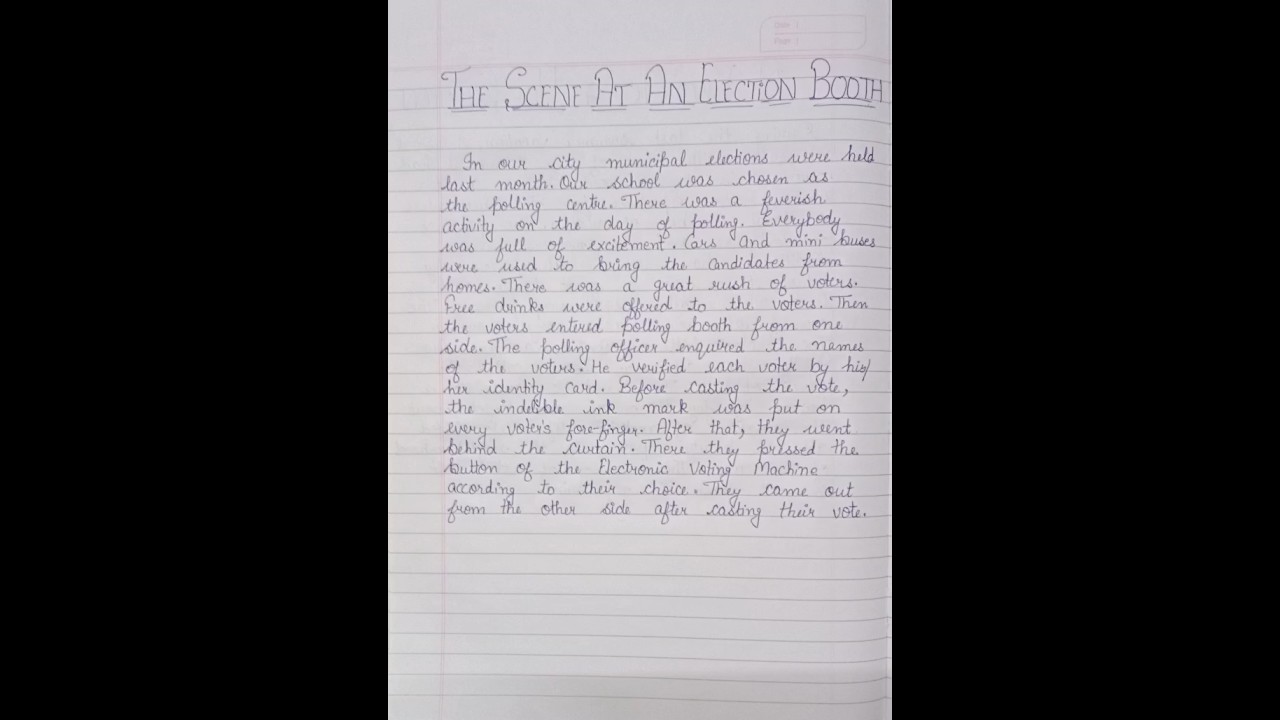 Date :
Page :
THE SCENE AT AN ELECTION BOOTH
In our city municipal elections were held
last month. Our school was chosen as
the polling centre. There was a feverish
activity on the day of polling. Everybody
was full of excitement. Cars and mini buses
were used to bring the candidates from
homes. There was a great rush of voters.
Free drinks were offered to the voters. Then
the voters entered polling booth from one
side. The polling officer enquired the names
of the voters. He verified each voter by his/
her identity card. Before casting the vote,
the indelible ink mark was put on
every voter's fore-finger. After that, they went
behind the curtain. There they pressed the
button of the Electronic Voting Machine
according to their choice. They came out
from the other side after casting their vote.